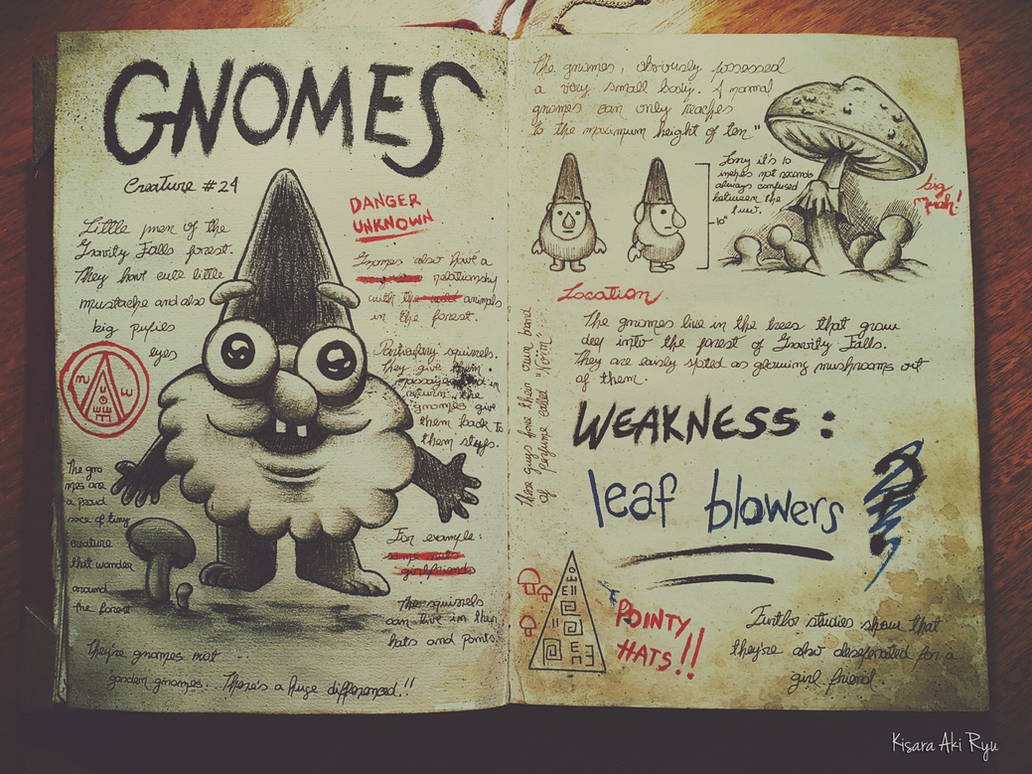 GNOMES
Creature #24
Little men of the
Gravity Falls forest.
They have cute little
mustache and also
big pupies
eyes
The gno
mes are
a proud
race of tiny
creature
that wander
around
the forest
They're gnomes not
garden gnomes... There's a huge differenced!!
DANGER
UNKNOWN
Gnomes also have a
relationship
with the animals
in the forest.
squirrels.
They give them
massages and in
the
gnomes give
them back to
them
For example:
girlfriends
The squirrels
can live in their
hats and pants.
these guys have their own brand
of perfume called
The gnomes, obviously possessed
a very small body. A normal
gnomes can only reaches
to the maximum height of ten"
Sorry it's 10
inches not seconds
always confused
between the
two.
10"
big
Location
The gnomes live in the trees that grow
deep into the forest of Gravity Falls.
They are easily spoted as growing mushrooms out
of them.
WEAKNESS:
leaf blowers
POINTY
HATS!!
studies show that
they're also desperated for a
girl friend.
Kisara Aki Ryu